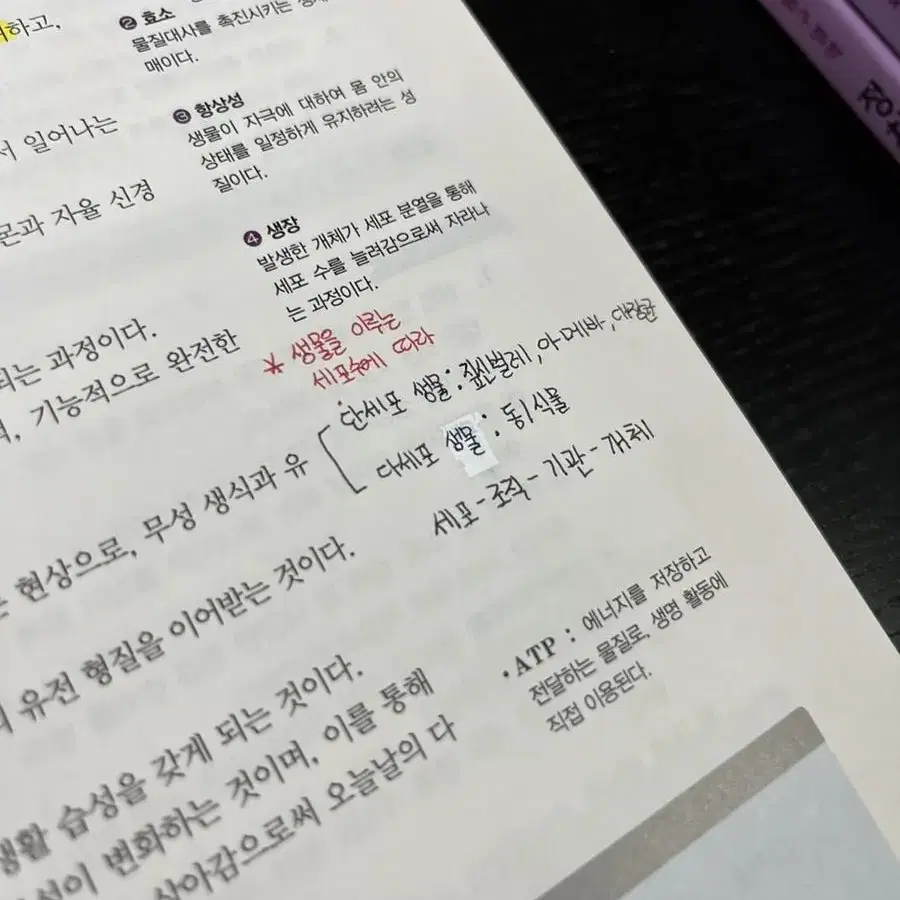 하고,
서 일어나는
과 자율 신경
되는 과정이다.
기능적으로 완전한
현상으로, 무성 생식과 유
유전 형질을 이어받는 것이다.
생활 습성을 갖게 되는 것이다.
변화하는 것이며, 이를 통해
살아감으로써 오늘날의 다
❷ 효소
물질대사를 촉진시키는
매이다.
❸ 항상성
생물이 자극에 대하여 몸 안의
상태를 일정하게 유지하려는 성
질이다.
❹ 생장
발생한 개체가 세포 분열을 통해
세포 수를 늘려감으로써 자라나
는 과정이다.
* 생물을 이루는
세포수에 따라
단세포 생물: 짚신벌레, 아메바, 대장균
다세포 생물: 동/식물
세포-조직-기관-개체
• ATP : 에너지를 저장하고
전달하는 물질로, 생명 활동에
직접 이용된다.